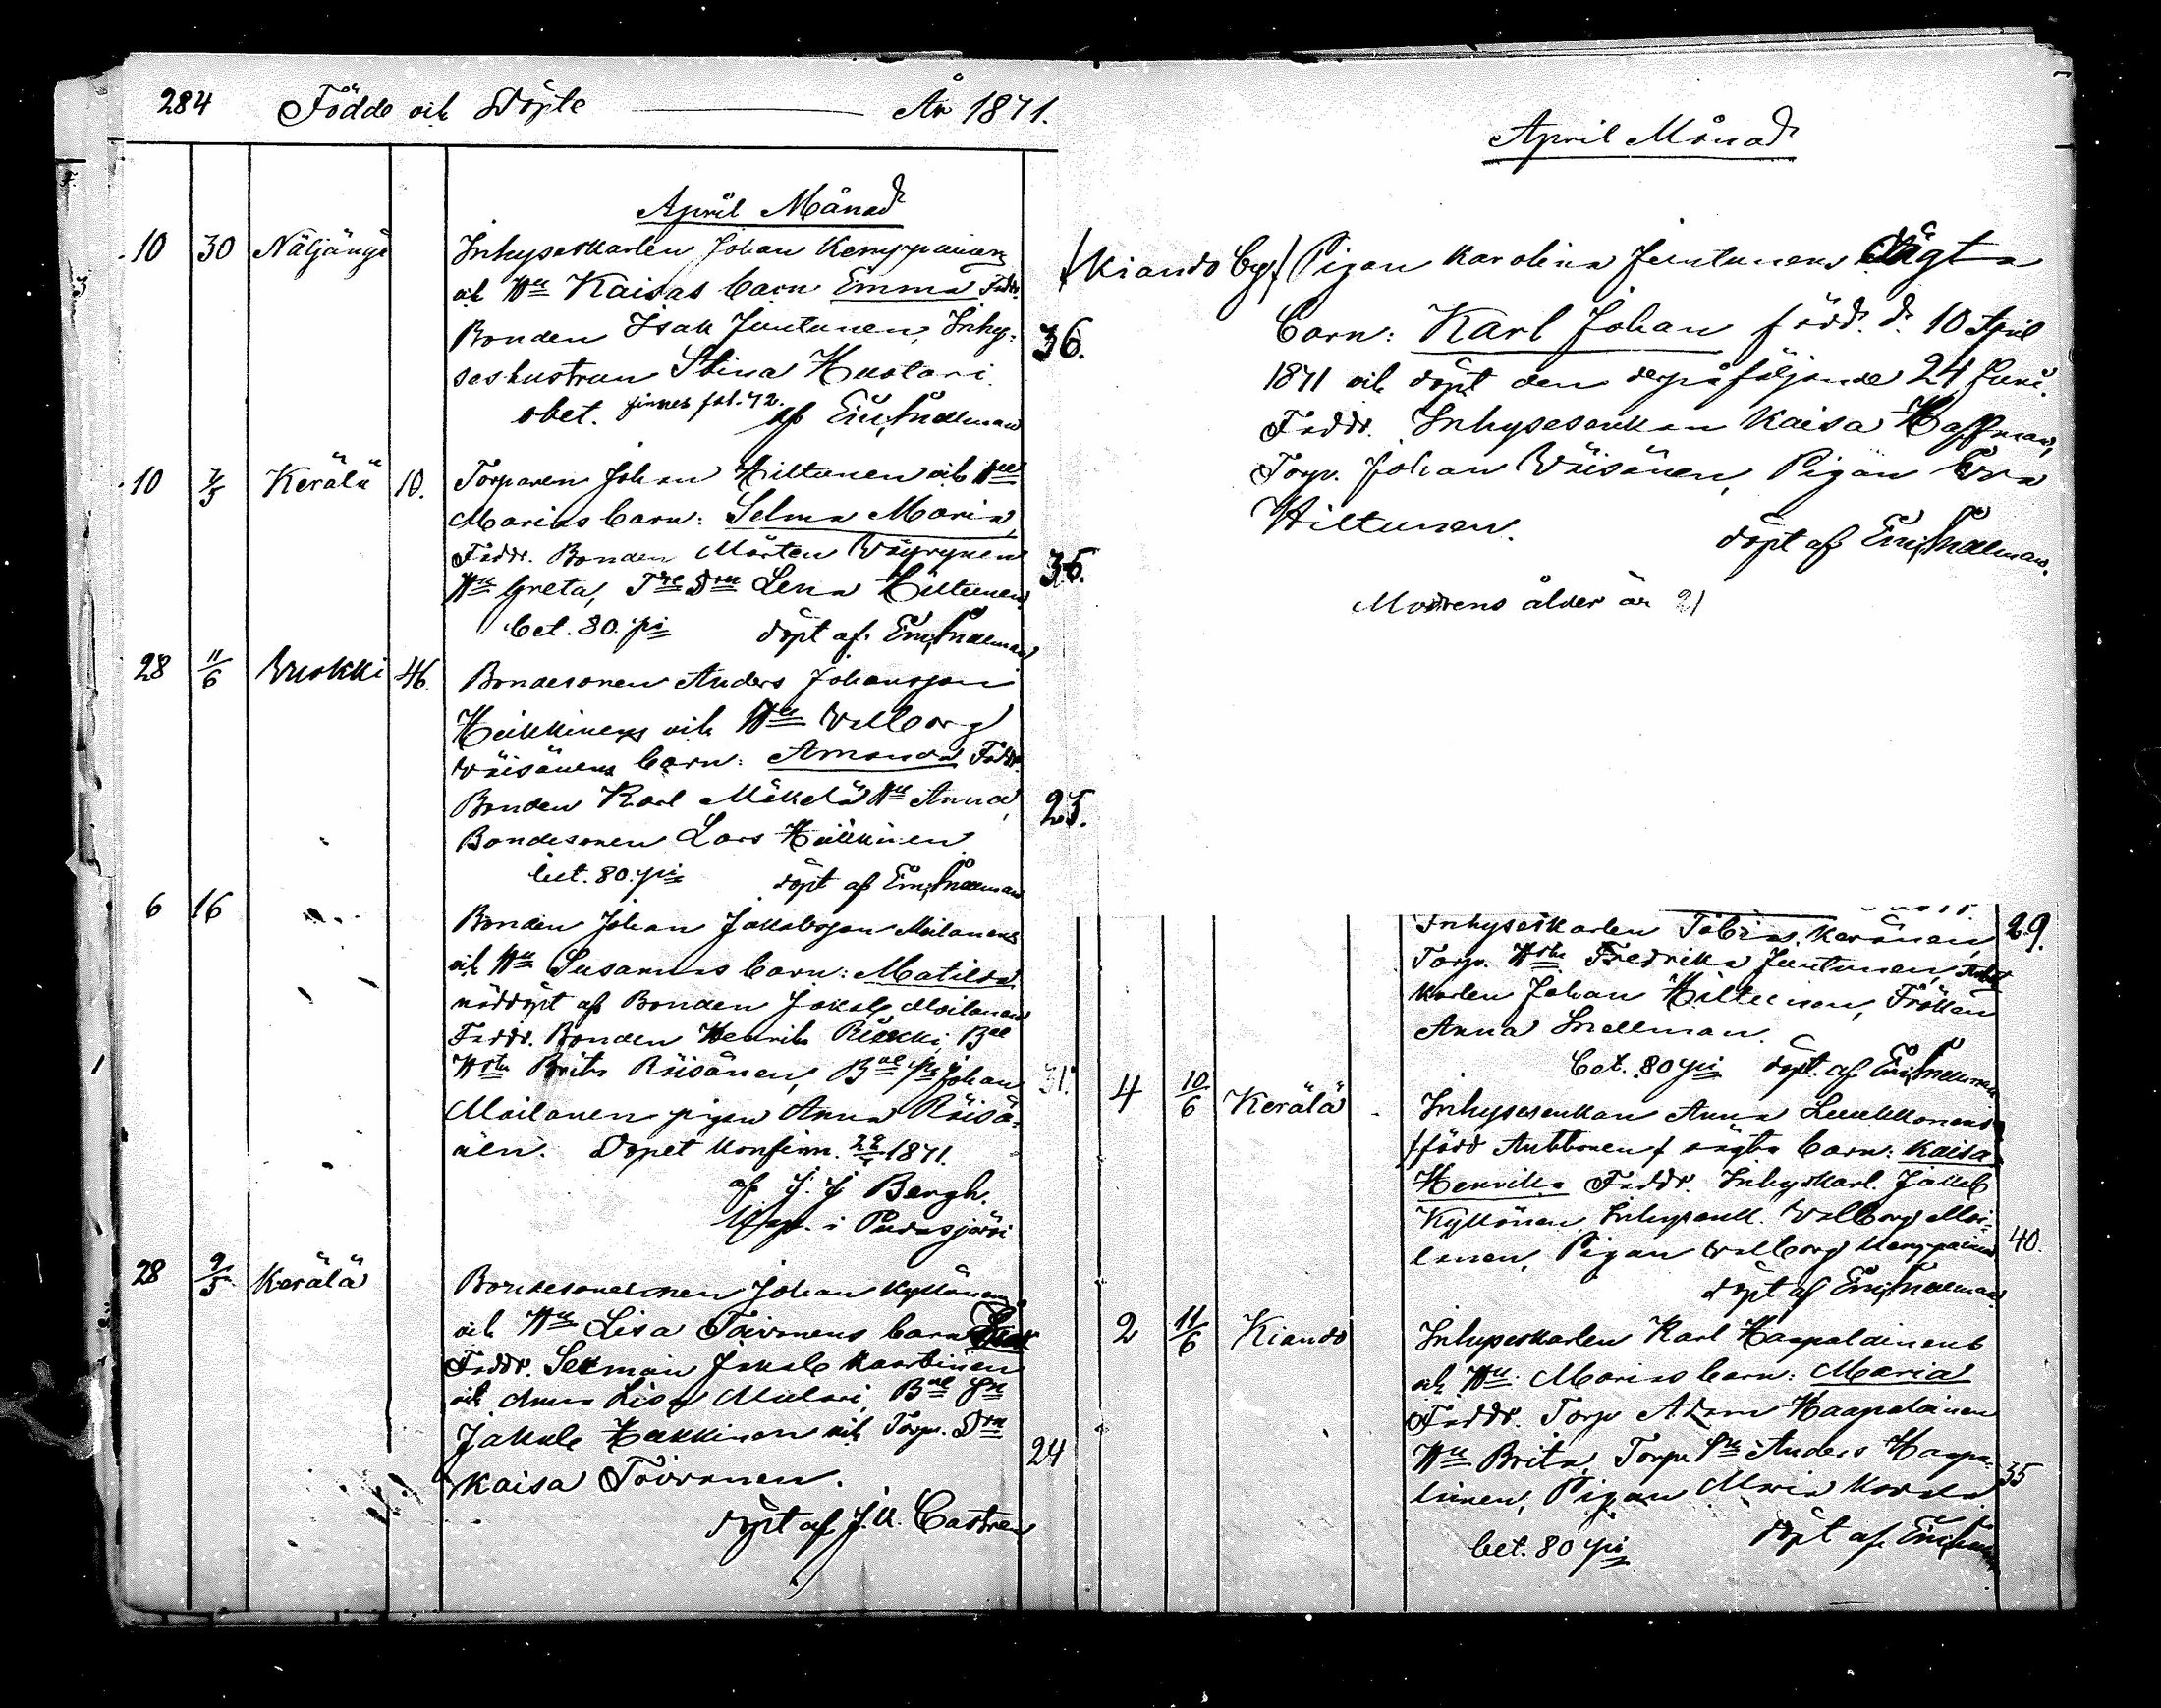 284 Födde och Döpte År 1871.
April Månad
10 30 Näljänge Inhyseskarlen Johan Kemppainens
och Hu Kaisas barn Emma Faddr.
Bonden Isak Juntunen, Inhy-
seshustrun Stina Huotari. 36.
obet. finnes fol. 72. af Em. Snellman
10 7/5 Kerälä 10. Torparen Johan Hiltunen och Hu
Marias barn: Selma Maria,
Faddr. Bonden Mårten Wäyrynen
Hu Greta, Tre Dru Lena Hiltunen 36.
bet. 80. pi döpt af Em. Snellman
28 11/6 Wuokki 46. Bondesonen Anders Johansson
Heikkinens och Hu Walborg
Wäisänens barn: Amanda Faddr.
Bonden Karl Mäkelä Hu Anna, 25.
Bondesonen Lars Heikkinen
bet. 80. pi döpt af Em. Snellman
6 16 Bonden Johan Jakobsson Moilanens
och Hu Susannas barn: Matilda
nöddöpt af Bonden Jakob Moilanen
Faddr. Bonden Henrik Bde
Hstu Brita Räisänen, Bde Johan 31.
Moilanen pigan Anna Räisä-
nen. Dopet konfirm. 1871.
af J. J Bergh.
Kap. i Pudasjärvi
28 9/5 Kerälä Johan Kyllönens
och Hu Lisa Toivonens barn
Faddr. Jakob Kaartinen
och Anna Lisa Mulari, Bde Sn
Jakob Heikkinen och Torp. Dru 24
Kaisa Toivonen.
döpt af J. A. Castren
April Månad
/Kiando by/ Pigan Karolina Juntunens oägta
barn: Karl Johan född. d. 10 April
1871 och döpt den derpåföljande 24 Juni.
Faddr. Inhysesenkan Kaisa Hoffman,
Torp. Johan Wäisänen, Pigan Eva
Hiltunen. döpt af Em. Snellman.
Modrens ålder är 21
Inhyseskarlen Tobias Keränen, 29.
Torp. Hstu Fredrika Juntunen,
karlen Johan Hiltunen, Fröken
Anna Snellman.
bet. 80 pi döpt af Em. Snellman
4 10/6 Kerälä Inhysesenkan Anna Leukkonens
/född Anttonen/ oägta barn: Kaisa
Henrika Faddr. Inhyskarl. Jakob
Kyllönen, Inhysenk. Walborg Moi-
lanen, Pigan Walborg Kemppainen 40.
döpt af Em. Snellman
2 11/6 Kiando Inhyseskarlen Karl Haapalainens
och Hu. Marias barn: Maria
Faddr. Torp Adam Haapalainen
Hu Brita, Torp. Sn Anders Haapa-
lainen, Pigan Maria 35
bet. 80 pi döpt af Em. Snellman